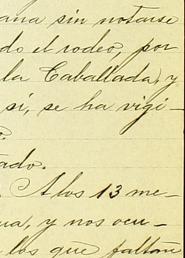 ana sin notarse
do el rodeo, por
la Caballada, y
si, se ha vigi-
o.
ado.
. A los 13 me-
ua, y nos ocu-
los que faltan